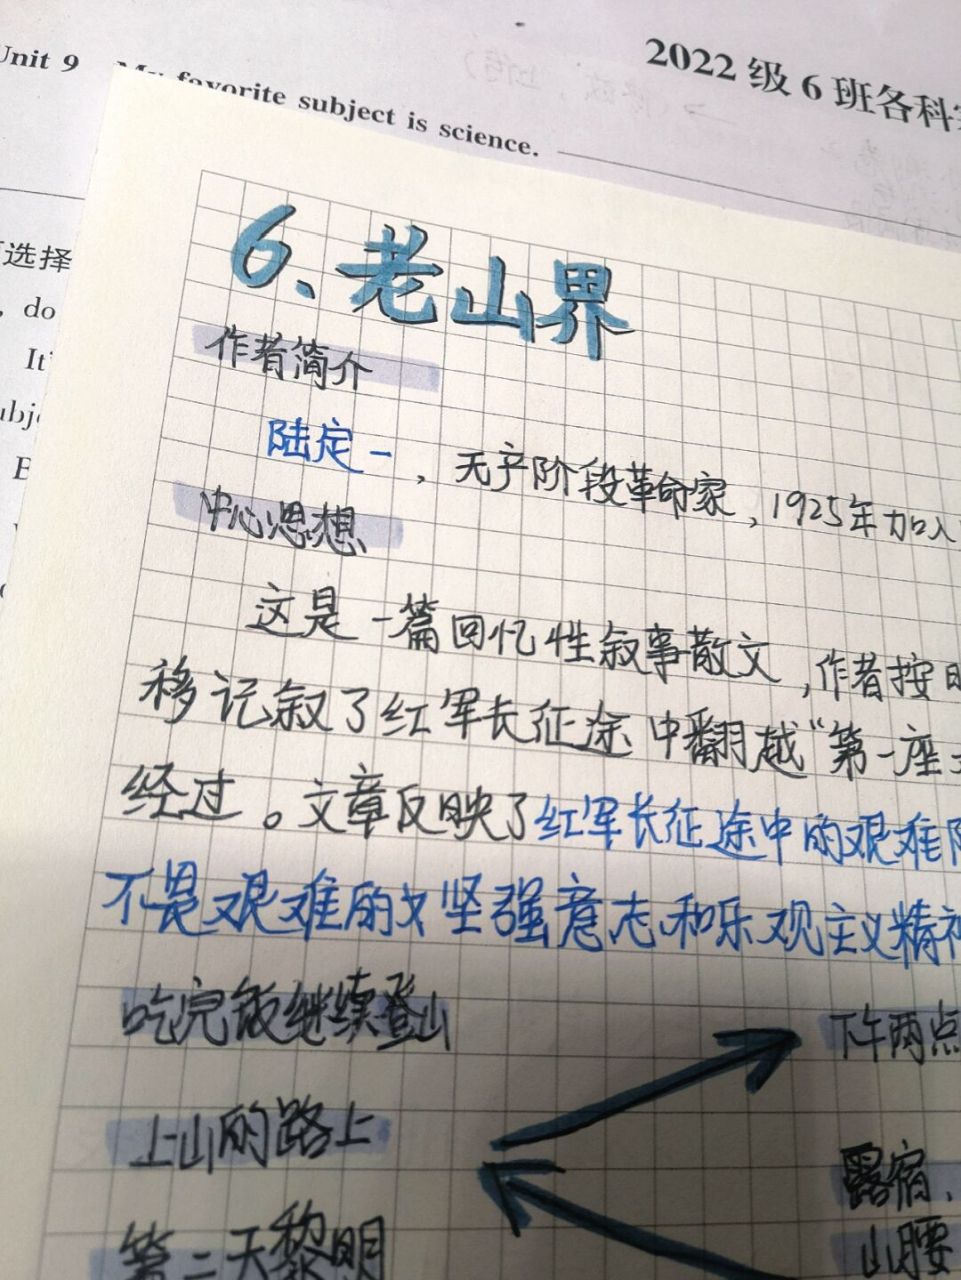 Unit 9 My favorite subject is science.
2022 级 6 班各科
选择
, do
It'
ubj
6、老山界
作者简介
陆定一，无产阶段革命家，1925年加入
中心思想
这是一篇回忆性叙事散文，作者按
移记叙了红军长征途中翻越“第一座
经过。文章反映了红军长征途中的艰难
不畏艰难的坚强意志和乐观主义精神
吃完饭继续登山
下午两点
上山的路上
露宿、
山腰
第二天黎明